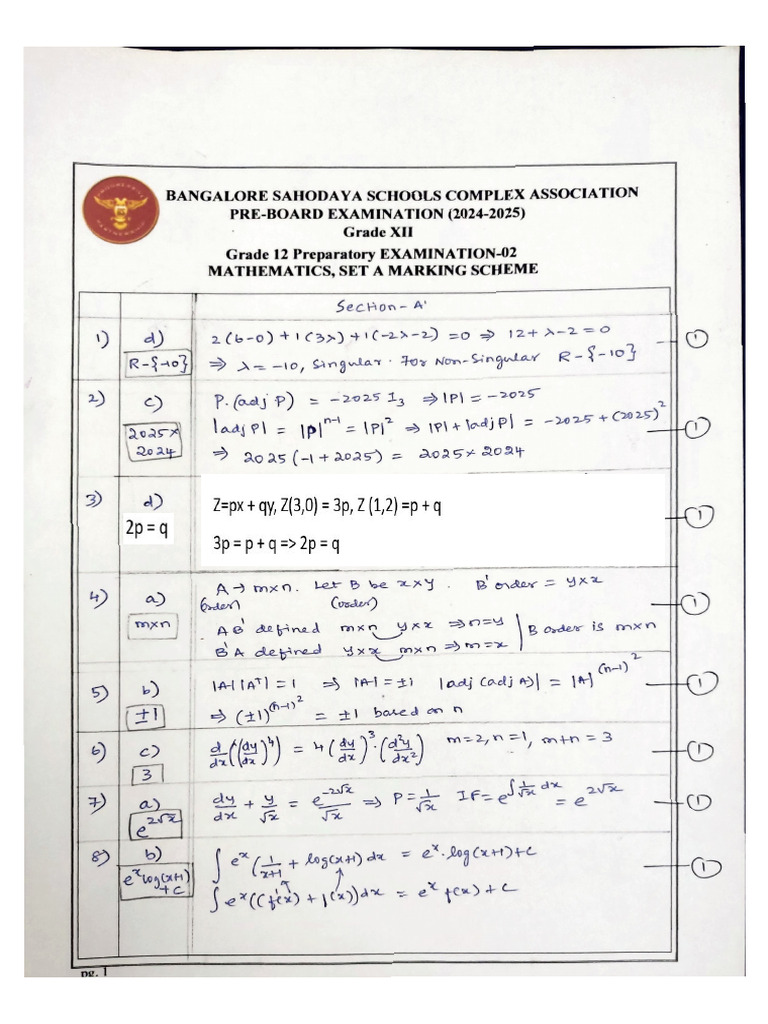 BANGALORE SAHODAYA SCHOOLS COMPLEX ASSOCIATION
PRE-BOARD EXAMINATION (2024-2025)
Grade XII
Grade 12 Preparatory EXAMINATION-02
MATHEMATICS, SET A MARKING SCHEME
Section-A'
1) d) 2(6-0)+1(3λ)+1(-2λ-2)=0 ⇒ 12+λ-2=0
R-{-10} ⇒ λ=-10, Singular. For Non-Singular R-{-10} 1
2) c) P.(adj P) = -2025 I₃ ⇒|P| = -2025
2025× 2024 |adj P| = |P|ⁿ⁻¹ = |P|² ⇒ |P|+|adj P| = -2025+(2025)² 1
⇒ 2025(-1+2025) = 2025×2024
3) d) Z=px + qy, Z(3,0) = 3p, Z (1,2) =p + q
2p = q 3p = p + q => 2p = q 1
4) a) A → m×n. Let B be x×y. B' order = y×x
(order) (order)
m×n AB' defined m×n y×x ⇒n=y | B order is m×n 1
B'A defined y×x m×n ⇒m=x
5) b) |A||Aᵀ|=1 ⇒ |A|=±1 |adj(adj A)| = |A|^(n-1)² 1
±1 ⇒ (±1)^(n-1)² = ±1 based on n
6) c) d/dx((dy/dx)⁴) = 4(dy/dx)³.(d²y/dx²) m=2, n=1, m+n=3 1
3
7) a) dy/dx + y/√x = e^(-2√x)/√x ⇒ P=1/√x IF=e^∫1/√x dx = e^2√x 1
e^2√x
8) b) ∫eˣ(1/(x+1) + log(x+1) dx = eˣ.log(x+1)+C 1
eˣlog(x+1) +C ∫eˣ((f'(x)+f(x))dx = eˣ f(x)+C
pg. 1